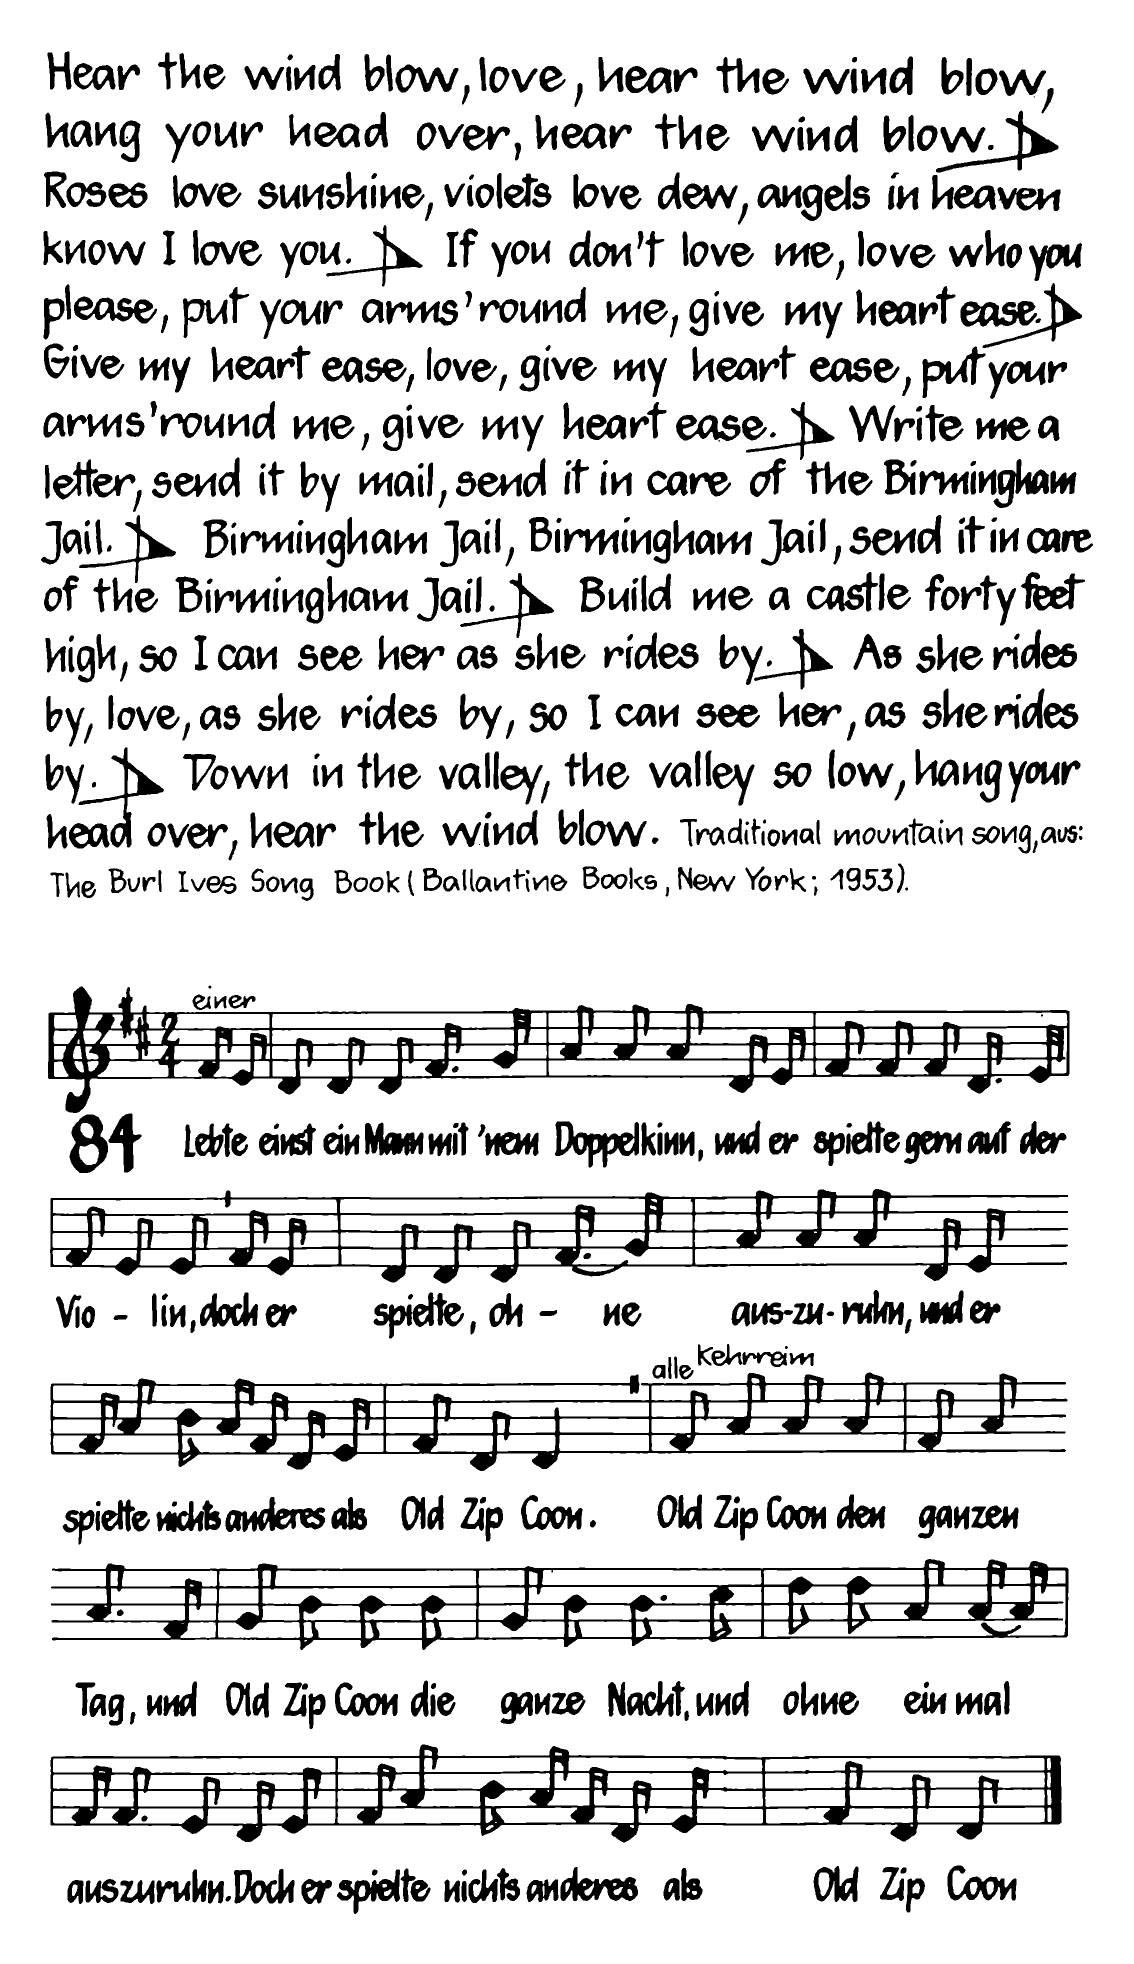 Hear the wind blow, love, hear the wind blow,
hang your head over, hear the wind blow.
Roses love sunshine, violets love dew, angels in heaven
know I love you. If you don't love me, love who you
please, put your arms 'round me, give my heart ease.
Give my heart ease, love, give my heart ease, put your
arms 'round me, give my heart ease. Write me a
letter, send it by mail, send it in care of the Birmingham
Jail. Birmingham Jail, Birmingham Jail, send it in care
of the Birmingham Jail. Build me a castle forty feet
high, so I can see her as she rides by. As she rides
by, love, as she rides by, so I can see her, as she rides
by. Down in the valley, the valley so low, hang your
head over, hear the wind blow. Traditional mountain song, aus:
The Burl Ives Song Book (Ballantine Books, New York; 1953).
einer
2
4
84 Lebte einst ein Mann mit 'nem Doppelkinn, und er spielte gern auf der
Vio - lin, doch er spielte, oh - ne aus-zu-ruhn, und er
alle Kehrreim
spielte nichts anderes als Old Zip Coon. Old Zip Coon den ganzen
Tag, und Old Zip Coon die ganze Nacht, und ohne ein mal
auszuruhn. Doch er spielte nichts anderes als Old Zip Coon